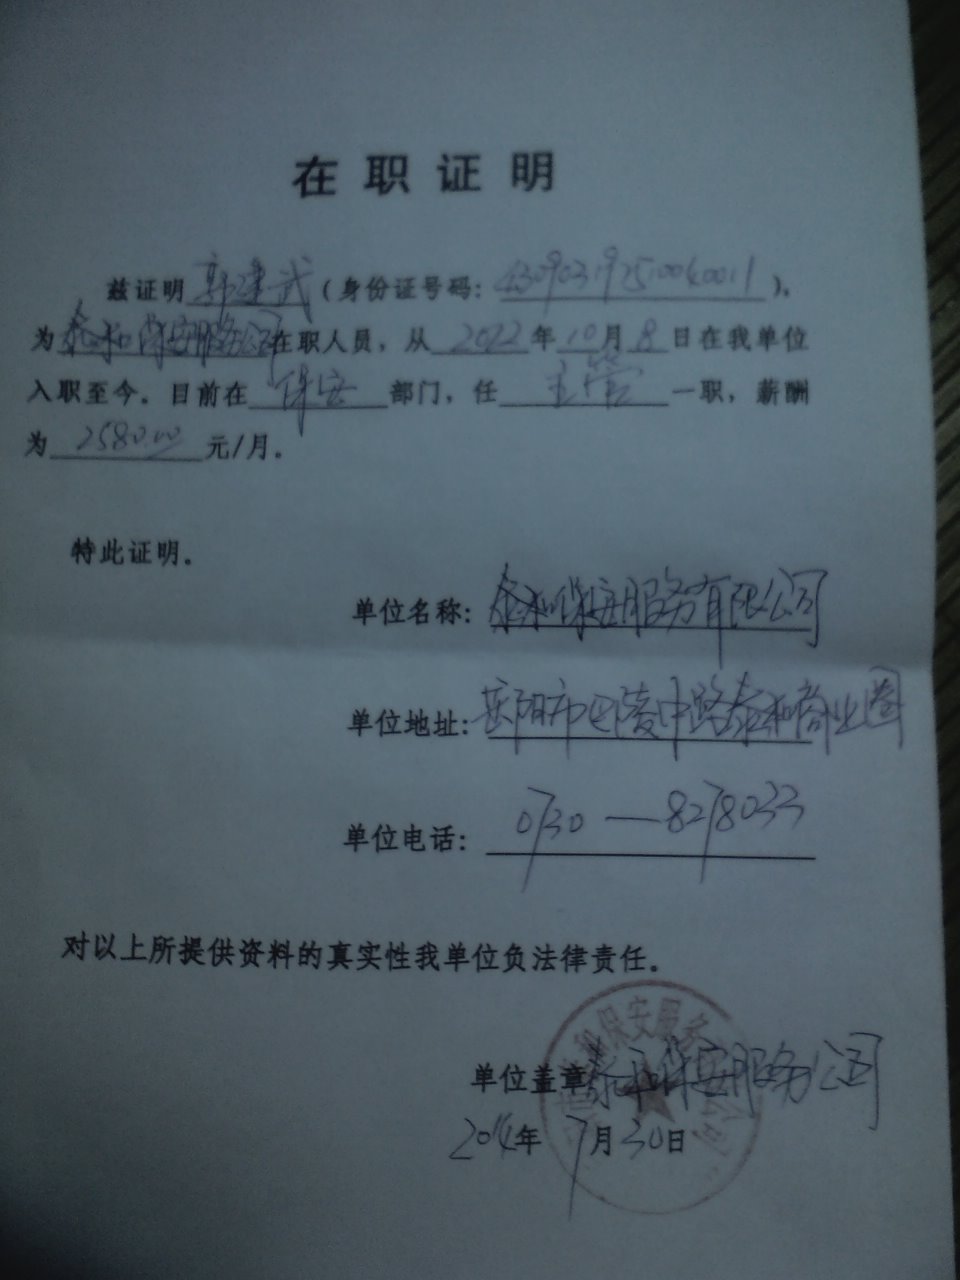 在职证明
兹证明郭建武(身份证号码:430903192510040011)。
为泰和保安服务公司在职人员，从2022年10月8日在我单位
入职至今。目前在保安部门，任主管一职，薪酬
为2580.00元/月。
特此证明。
单位名称：泰和保安服务有限公司
单位地址：岳阳市巴陵中路泰和商业圈
单位电话：0730—8278033
对以上所提供资料的真实性我单位负法律责任。
保安服务 公司
单位盖章 泰和保安服务公司
2014年7月30日